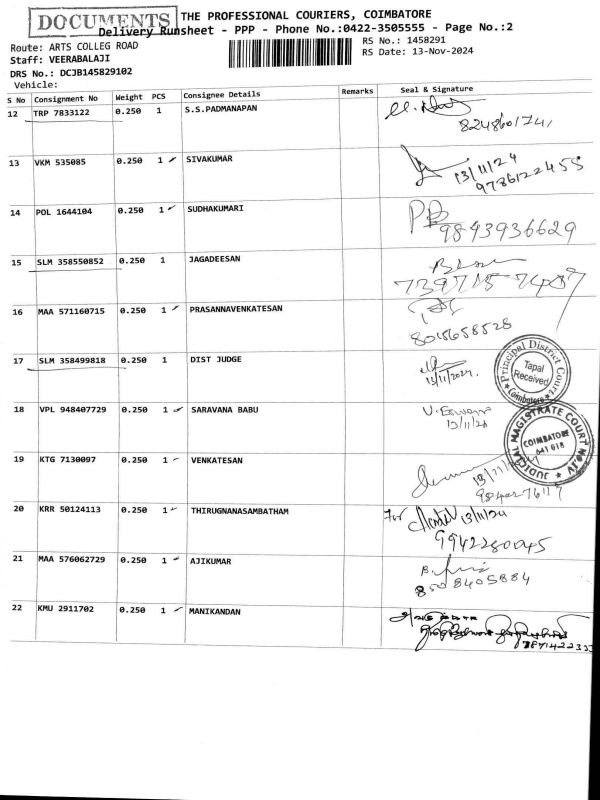 DOCUMENTS
THE PROFESSIONAL COURIERS, COIMBATORE
Delivery Runsheet - PPP - Phone No.:0422-3505555 - Page No.:2
Route: ARTS COLLEG ROAD
RS No.: 1458291
Staff: VEERABALAJI
RS Date: 13-Nov-2024
DRS No.: DCJB145829102
Vehicle:
S No Consignment No Weight PCS Consignee Details Remarks Seal & Signature
12 TRP 7833122 0.250 1 S.S.PADMANAPAN
8248601741
13 VKM 535085 0.250 1 SIVAKUMAR 13/11/24
9786122455
14 POL 1644104 0.250 1 SUDHAKUMARI
9843936629
15 SLM 358550852 0.250 1 JAGADEESAN
16 MAA 571160715 0.250 1 PRASANNAVENKATESAN
8015658528
17 SLM 358499818 0.250 1 DIST JUDGE
13/11/2024.
Principal District Court
Tapal
Received
Coimbatore
18 VPL 948407729 0.250 1 SARAVANA BABU
13/11/24
JUDICIAL MAGISTRATE COURT No.IV
COIMBATORE
641 018
19 KTG 7130097 0.250 1 VENKATESAN
20 KRR 50124113 0.250 1 THIRUGNANASAMBATHAM For 13/11/24
9942280045
21 MAA 576062729 0.250 1 AJIKUMAR
8508405884
22 KMU 2911702 0.250 1 MANIKANDAN